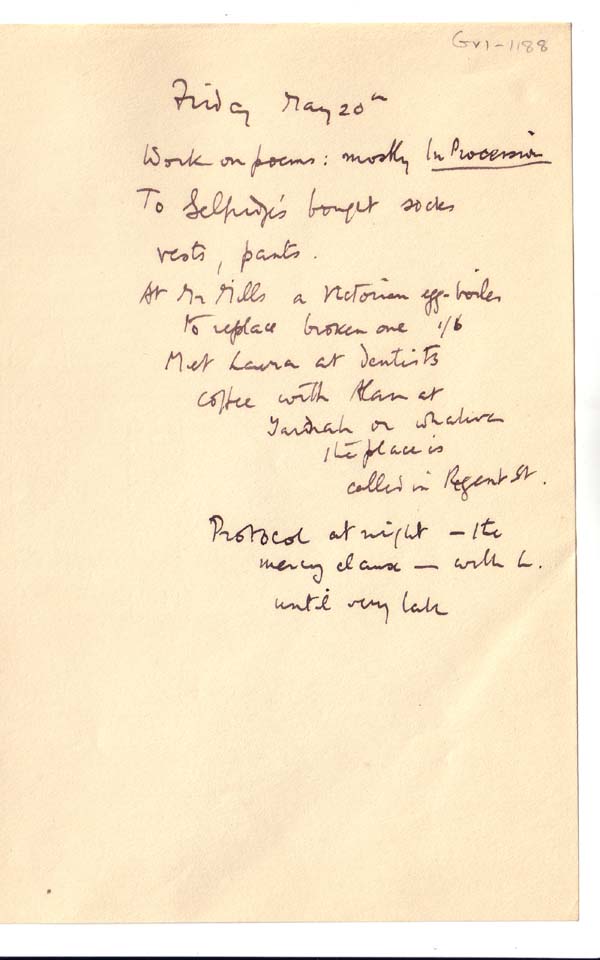 GV1-1188
Friday May 20th
Work on poems: mostly In Procession
To Selfridge's bought socks
vests, pants.
At Mr Mills a Victorian egg-boiler
to replace broken one 1/6
Met Laura at dentists
coffee with Alan at
or whatever
the place is
called in Regent St.
Protocol at night – the
mercy clause – with L.
until very late